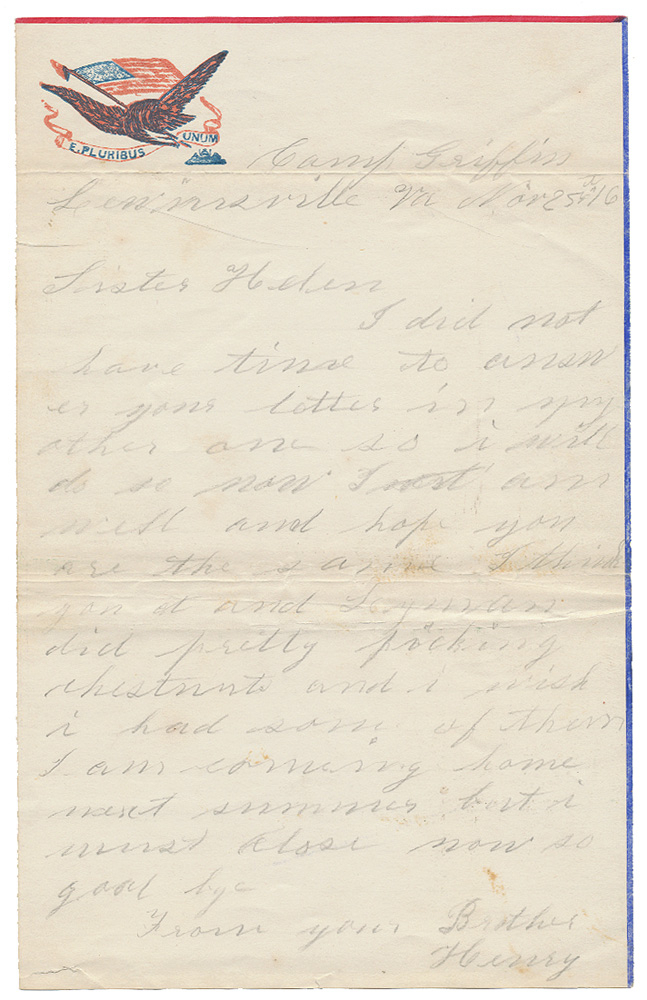 E. PLURIBUS UNUM
Camp Griffin
Lewinsville Va Nov 25th 16
Sister Helen
I did not
have time to answ
er your letter in my
other one so i will
do so now I am
well and hope you
are the same I think
you and Lyman
did pretty picking
chestnuts and i wish
i had some of them
I am comeing home
next summer but i
must close now so
good bye
From your Brother
Henry